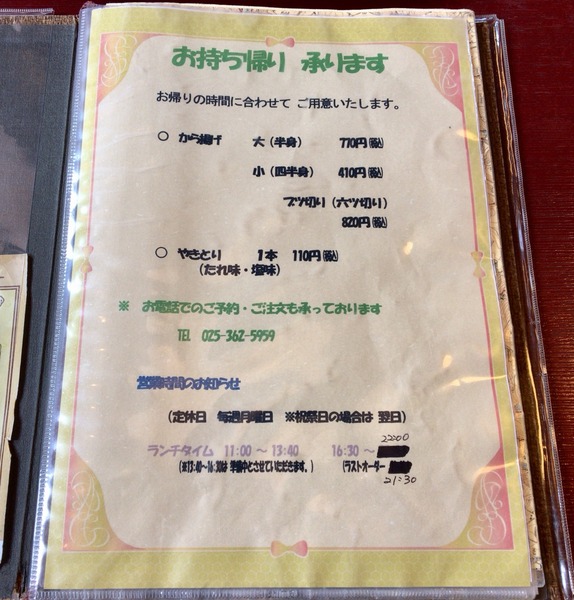 お持ち帰り 承ります
お帰りの時間に合わせて ご用意いたします。
○ から揚げ 大(半身) 770円(税込)
小(四半身) 410円(税込)
ブツ切り(六ツ切り)
820円(税込)
○ やきとり 1本 110円(税込)
(たれ味・塩味)
※ お電話でのご予約・ご注文も承っております
TEL 025-362-5959
営業時間のお知らせ
(定休日 毎週月曜日 ※祝祭日の場合は 翌日)
22:00
ランチタイム 11:00 ～ 13:40 16:30 ～
(※13:40～16:30は 準備中とさせていただきます。) (ラストオーダー
21:30